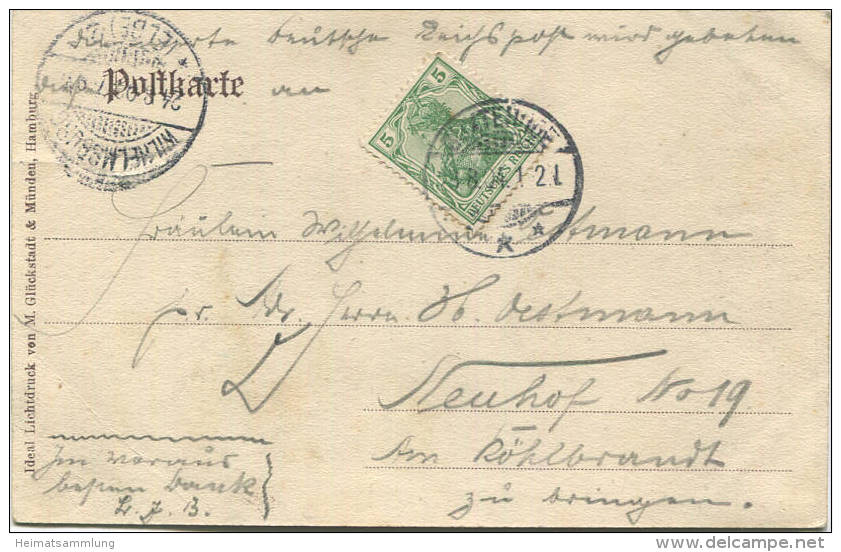 Die werte Deutsche Reichspost wird gebeten
diese Postkarte an
WILHELMSBURG
(ELBE)
5
5
DEUTSCHES REICH
1 2.
Fräulein Wilhelmine Oestmann
pr. Adr. Herrn Hb. Oestmann
Neuhof No 19
Am Köhlbrandt
zu bringen.
Im voraus
besten Dank
L. J. B.
Ideal Lichtdruck von M. Glückstadt & Münden, Hamburg.
Heimatsammlung
www.delcampe.net